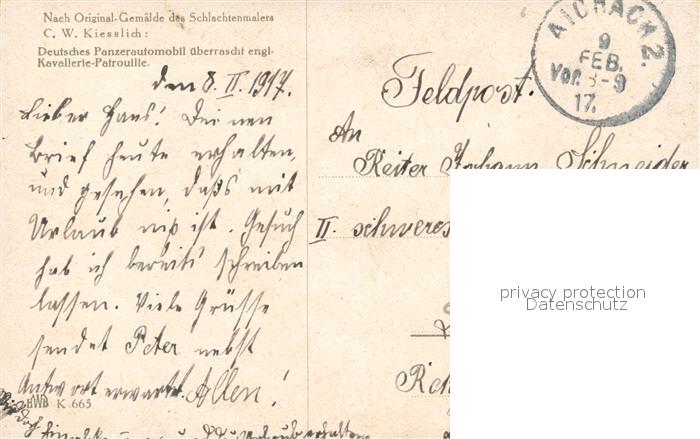 Nach Original-Gemälde des Schlachtenmalers
C. W. Kiesslich:
Deutsches Panzerautomobil überrascht engl.
Kavallerie-Patrouille.
den 8. II. 1917.
Lieber Hans! Deinen
Brief heute erhalten,
und gesehen, daß mit
Urlaub nix ist. Gesuch
hab ich bereits schreiben
lassen. Viele Grüsse
sendet Peter nebst
Antwort erwartet. Allen!
HWB K 665
Urlaub erhalten
AICHACH 2.
9
FEB.
Vor. 8-9
17.
Feldpost.
An
Reiter Johann Schneider
II schweres
privacy protection
Datenschutz